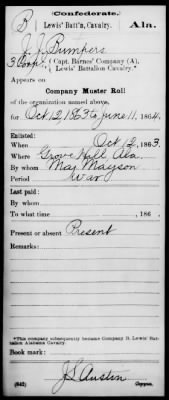 (Confederate.)
B Lewis' Batt'n, Cavalry. Ala.
J. J. Bumpers
3 Corp, Capt. Barnes' Company (A), Lewis' Battalion Cavalry.*
Appears on
Company Muster Roll
of the organization named above,
for Oct 12, 1863 to June 11, 1864.
Enlisted:
When Oct 12, 1863.
Where Grove Hill Ala.
By whom Maj Mayson
Period War
Last paid:
By whom
To what time , 186 .
Present or absent Present
Remarks:
*This company subsequently became Company B, Lewis' Battalion Alabama Cavalry.
Book mark:
J S Austin
(642) Copyist.